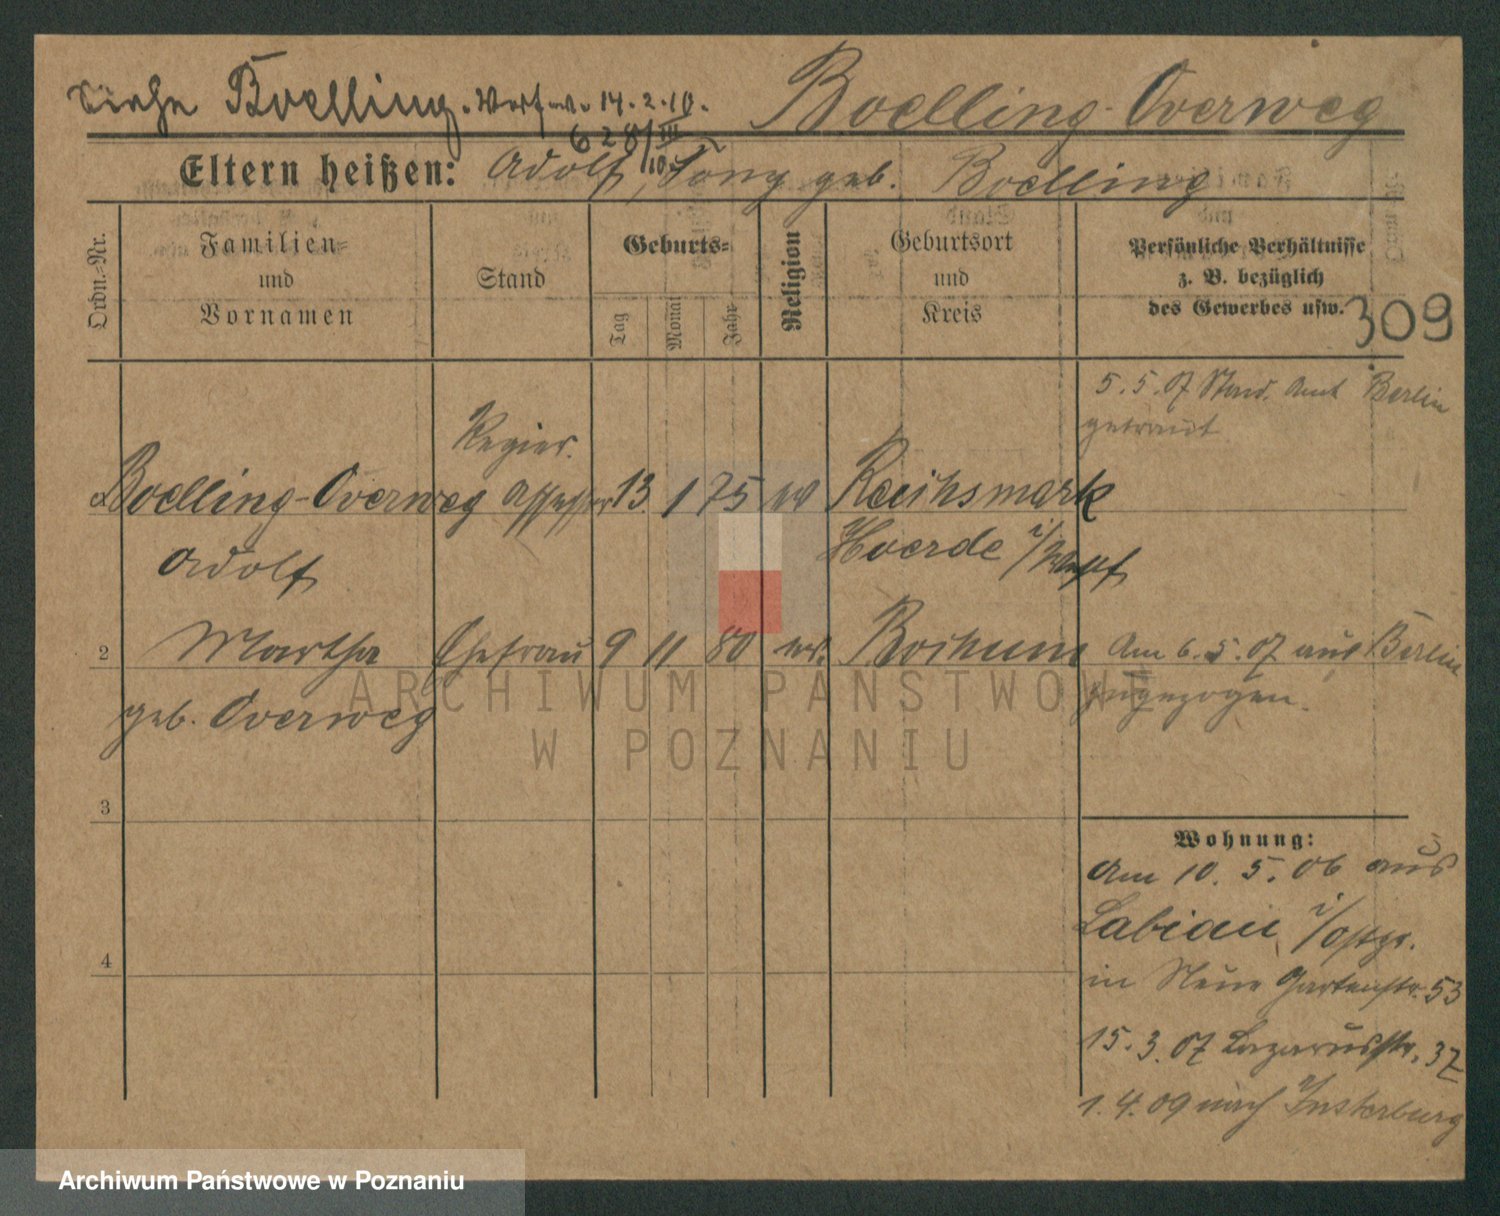 siehe Boelling. Verf. v. 14.2.10.
Boelling-Overweg
628/III 10
Eltern heißen: Adolf, Tony geb. Boelling
Ordn.-Nr.
Familien-
und
Vornamen
Stand
Geburts-
Tag
Monat
Jahr
Religion
Geburtsort
und
Kreis
Persönliche Verhältnisse
z. B. bezüglich
des Gewerbes usw.
309
5.5.07 Stand. Amt Berlin
getraut
Regier.
Boelling-Overweg Assessor 13. 1 75 ev Reichsmark
Adolf
Hoerde i/Westf
2 Martha Ehefrau 9 11 80 ev. Bochum
geb. Overweg
Am 6.5.07 aus Berlin
zugezogen.
3
4
Wohnung:
Am 10.5.06 aus
Labiau i/Ostpr.
in Neue Gartenstr. 53
15.3.07 Lazarusstr. 37
1.4.09 nach Insterburg
ARCHIWUM PAŃSTWOWE
W POZNANIU
Archiwum Państwowe w Poznaniu